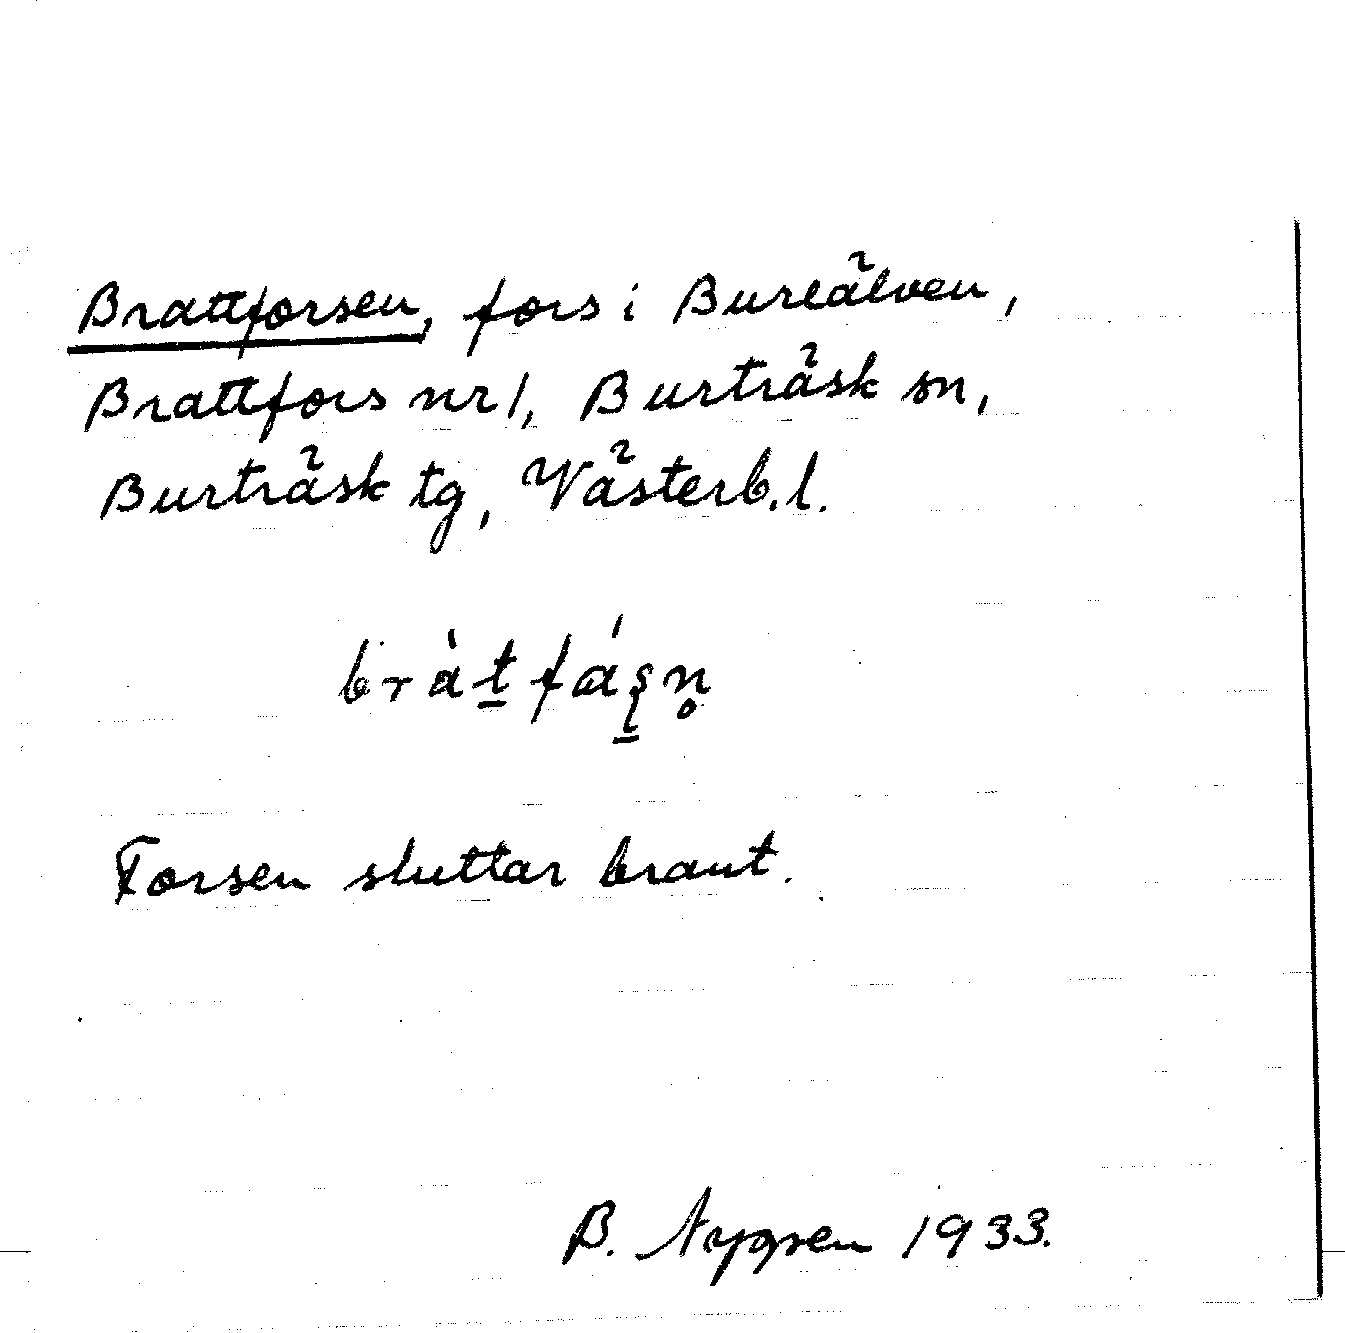 Brattforsen, fors i Bureälven,
Brattfors nr 1, Burträsk sn,
Burträsk tg, Västerb. l.
bràt̲fáʂ̲n̥
Forsen sluttar brant.
B. Nygren 1933.